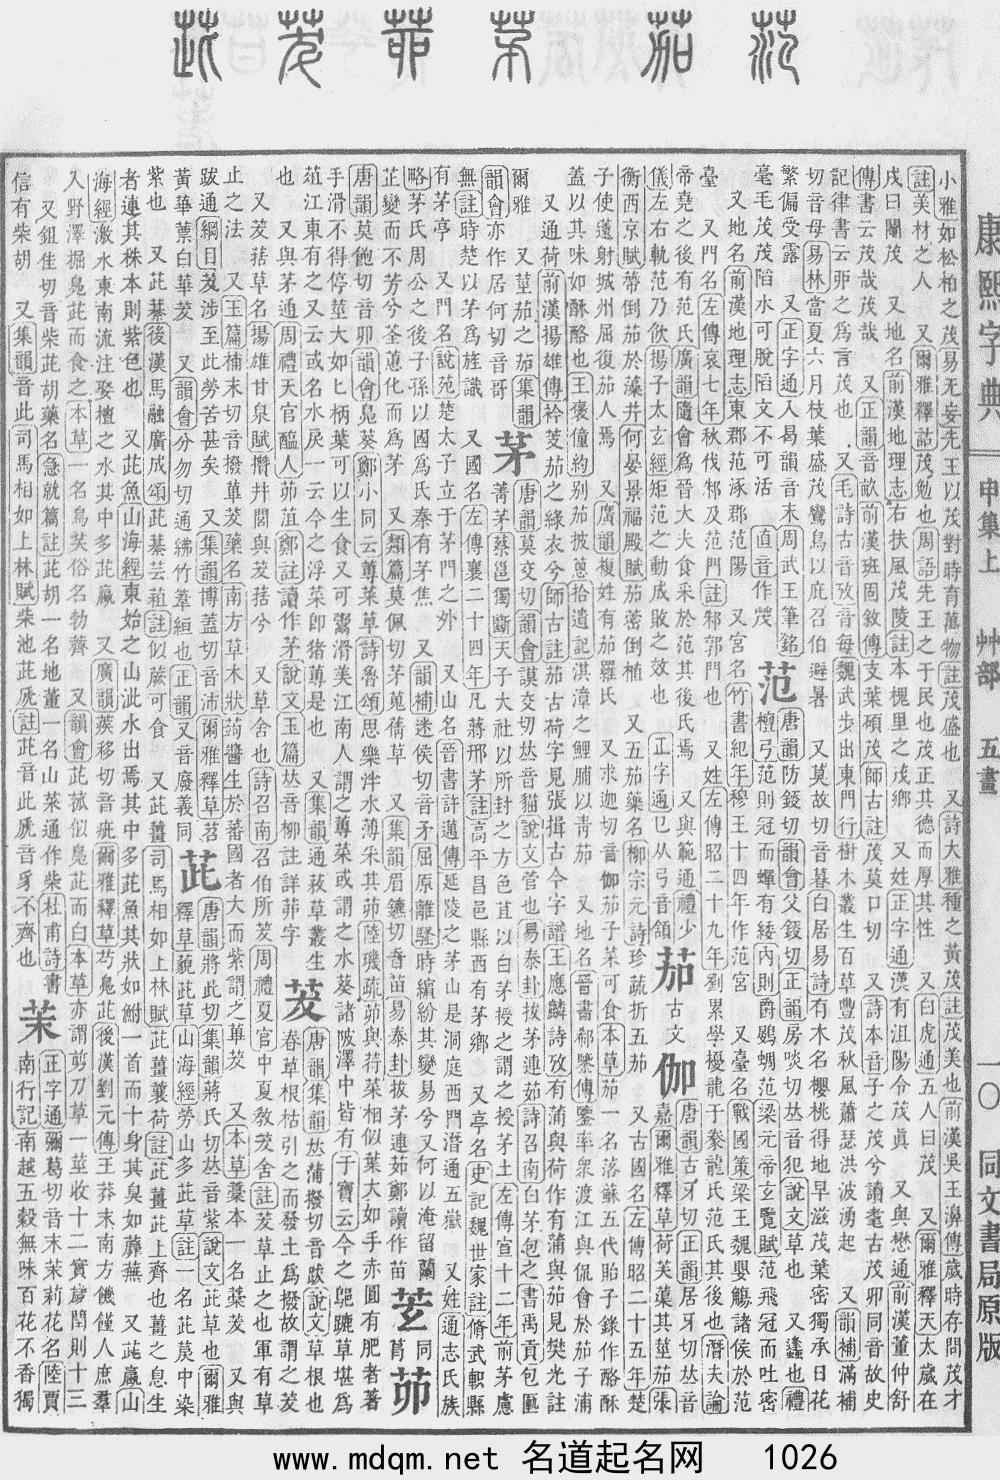 范 茄 茅 茆 茇 茈
康熙字典 申集上 艸部 五畫 一〇 同文書局原版
小雅如松柏之茂易无妄先王以茂對時育萬物註茂盛也 又詩大雅種之黃茂註茂美也前漢吳王濞傳歲時存問茂才
註美材之人 又爾雅釋詁茂勉也周語先王之于民也茂正其德而厚其性 又白虎通五人曰茂 又爾雅釋天太歲在
戊曰閹茂 又地名前漢地理志右扶風茂陵註本槐里之茂鄉 又姓正字通漢有沮陽令茂眞 又與懋通前漢董仲舒
傳書云茂哉茂哉 又正韻音畝前漢班固敘傳支葉碩茂師古註茂莫口切 又詩本音子之茂兮讀耄古茂卯同音故史
記律書云卯之爲言茂也 又毛詩古音攷音每魏武步出東門行樹木叢生百草豐茂秋風蕭瑟洪波湧起 又韻補滿補
切音母易林當夏六月枝葉盛茂鸞鳥以庇召伯避暑 又莫故切音暮白居易詩有木名櫻桃得地早滋茂葉密獨承日花
繁偏受露 又正字通入曷韻音末周武王筆銘
毫毛茂茂陷水可脫陷文不可活 直音作茙
范
唐韻防錽切韻會父錽切正韻房啖切𠀤音犯說文草也 又蠭也禮
檀弓范則冠而蟬有緌內則爵鷃蜩范梁元帝玄覽賦范飛冠而吐密
又地名前漢地理志東郡范涿郡范陽 又宮名竹書紀年穆王十四年作范宮 又臺名戰國策梁王魏嬰觴諸侯於范
臺 又門名左傳哀七年秋伐邾及范門註邾郭門也 又姓左傳昭二十九年劉累學擾龍于豢龍氏范氏其後也潛夫論
帝堯之後有范氏廣韻隨會爲晉大夫食采於范其後氏焉 又與範通禮少
儀左右軌范乃飲揚子太玄經矩范之動成敗之效也 正字通㔾从弓音頷
茄
古文
伽
唐韻古牙切正韻居牙切𠀤音
嘉爾雅釋草荷芙蕖其莖茄張
衡西京賦蔕倒茄於藻井何晏景福殿賦茄蔤倒植 又五茄藥名柳宗元詩珍蔬折五茄 又古國名左傳昭二十五年楚
子使薳射城州屈復茄人焉 又廣韻複姓有茄羅氏 又求迦切音伽茄子菜可食本草茄一名落蘇五代貽子錄作酪酥
蓋以其味如酥酪也王褒僮約別茄披蔥拾遺記淇漳之鯉脯以靑茄 又地名晉書郗鑒傳鑒率衆渡江與侃會於茄子浦
又通荷前漢揚雄傳衿芰茄之綠衣兮師古註茄古荷字見張揖古今字譜王應麟詩攷有蒲與荷作有蒲與茄見樊光註
爾雅 又荁茄之茄集韻
韻會亦作居何切音哥
茅
唐韻莫交切韻會謨交切𠀤音貓說文菅也易泰卦拔茅連茹詩召南白茅包之書禹貢包匭
菁茅蔡邕獨斷天子大社以所封之方色苴以白茅授之謂之授茅土左傳宣十二年前茅慮
無註時楚以茅爲旌識 又國名左傳襄二十四年凡蔣邢茅註高平昌邑縣西有茅鄉 又亭名史記魏世家註脩武軹縣
有茅亭 又門名說苑楚太子立于茅門之外 又山名晉書許邁傳延陵之茅山是洞庭西門潛通五嶽 又姓通志氏族
略茅氏周公之後子孫以國爲氏秦有茅焦 又韻補迷侯切音矛屈原離騷時繽紛其變易兮又何以淹留蘭
芷變而不芳兮荃蕙化而爲茅 又類篇莫佩切茅蒐蒨草 又集韻眉鑣切音苗易泰卦拔茅連茹鄭讀作苗
茆
唐韻莫飽切音卯韻會鳧葵鄭小同云蓴菜草詩魯頌思樂泮水薄采其茆陸璣疏茆與荇菜相似葉大如手赤圓有肥者著
手滑不得停莖大如匕柄葉可以生食又可鬻滑美江南人謂之蓴菜或謂之水葵諸陂澤中皆有于寶云今之𪁪䴘草堪爲
菹江東有之又云或名水戾一云今之浮菜卽猪蓴是也 又集韻通菽草叢生
也 又與茅通周禮天官醢人茆菹鄭註讀作茅說文玉篇𠀤音柳註詳茒字
茇
唐韻集韻𠀤蒲撥切音跋說文草根也
春草根枯引之而發土爲撥故謂之茇
又茇葀草名揚雄甘泉賦攢幷閭與茇葀兮 又草舍也詩召南召伯所茇周禮夏官中夏敎茇舍註茇草止之也軍有草
止之法 又玉篇補末切音撥蓽茇藥名南方草木狀蒟醬生於蕃國者大而紫謂之蓽茇 又本草藁本一名藁茇 又與
跋通綱目茇涉至此勞苦甚矣 又集韻博蓋切音沛爾雅釋草苕
黃華蔈白華茇 又韻會分勿切通紼竹𥮾縆也正韻又音廢義同
茈
唐韻將此切集韻蔣氏切𠀤音紫說文茈草也爾雅
釋草藐茈草山海經勞山多茈草註一名茈䓞中染
紫也 又茈綦後漢馬融廣成頌茈萁芸葅註似蕨可食 又茈薑司馬相如上林賦茈薑蘘荷註茈薑茈上齊也薑之息生
者連其株本則紫色也 又茈魚山海經東始之山泚水出焉其中多茈魚其狀如鮒一首而十身其臭如蘼蕪 又茈蠃山
海經激水東南流注娶檀之水其中多茈蠃 又廣韻蒺移切音疵爾雅釋草芍鳧茈後漢劉元傳王莽末南方饑僅人庶羣
入野澤掘鳧茈而食之本草一名烏芙俗名勃薺 又韻會茈菰似鳧茈而白本草亦謂剪刀草一莖收十二實歲閏則十三
又鉏佳切音柴茈胡藥名急就篇註茈胡一名地董一名山菜通作柴杜甫詩書
信有柴胡 又集韻音此司馬相如上林賦柴池茈虒註茈音此虒音豸不齊也
茉
正字通彌葛切音末茉莉花名陸賈
南行記南越五穀無味百花不香獨
www.mdqm.net 名道起名网 1026